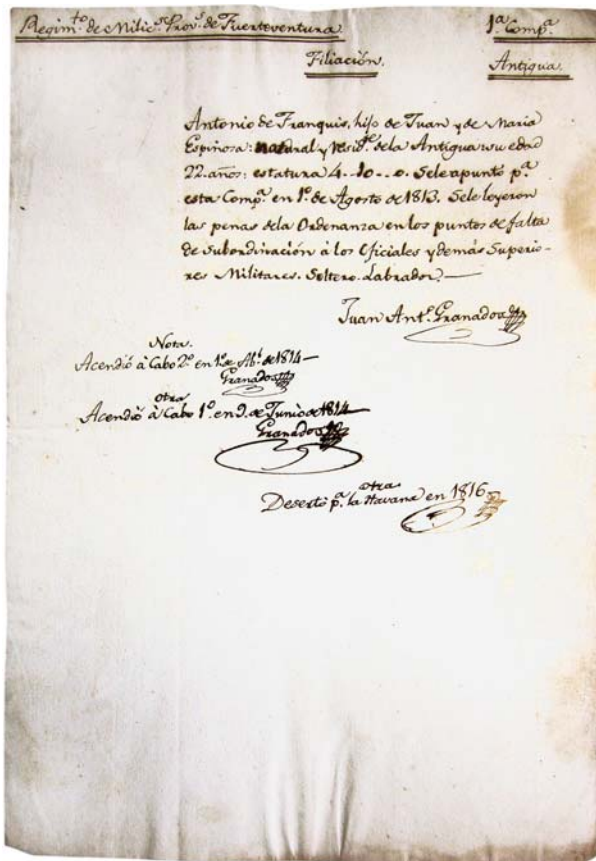 Regim.to de Milic.s Prov.s de Fuerteventura
1.a Comp.a
Filiación.
Antigua.
Antonio de Franquis, hijo de Juan y de Maria
Espinosa: natural y resid.te dela Antigua su edad
22 años: estatura 4-10-0. Sele apuntó p.a
esta Comp.a en 1.o de Agosto de 1813. Sele leyeron
las penas dela Ordenanza en los puntos de falta
de Subordinación à los Oficiales y demás Superio-
res Militares. Soltero. Labrador.—
Juan Ant.o Granados
Nota.
Acendió à Cabo 2.o en 1.o de Ab.l de 1814—
Granados
otra
Acendió à Cabo 1.o en 9. de Junio de 1814
Granados
otra
Desertó p.a la Havana en 1816